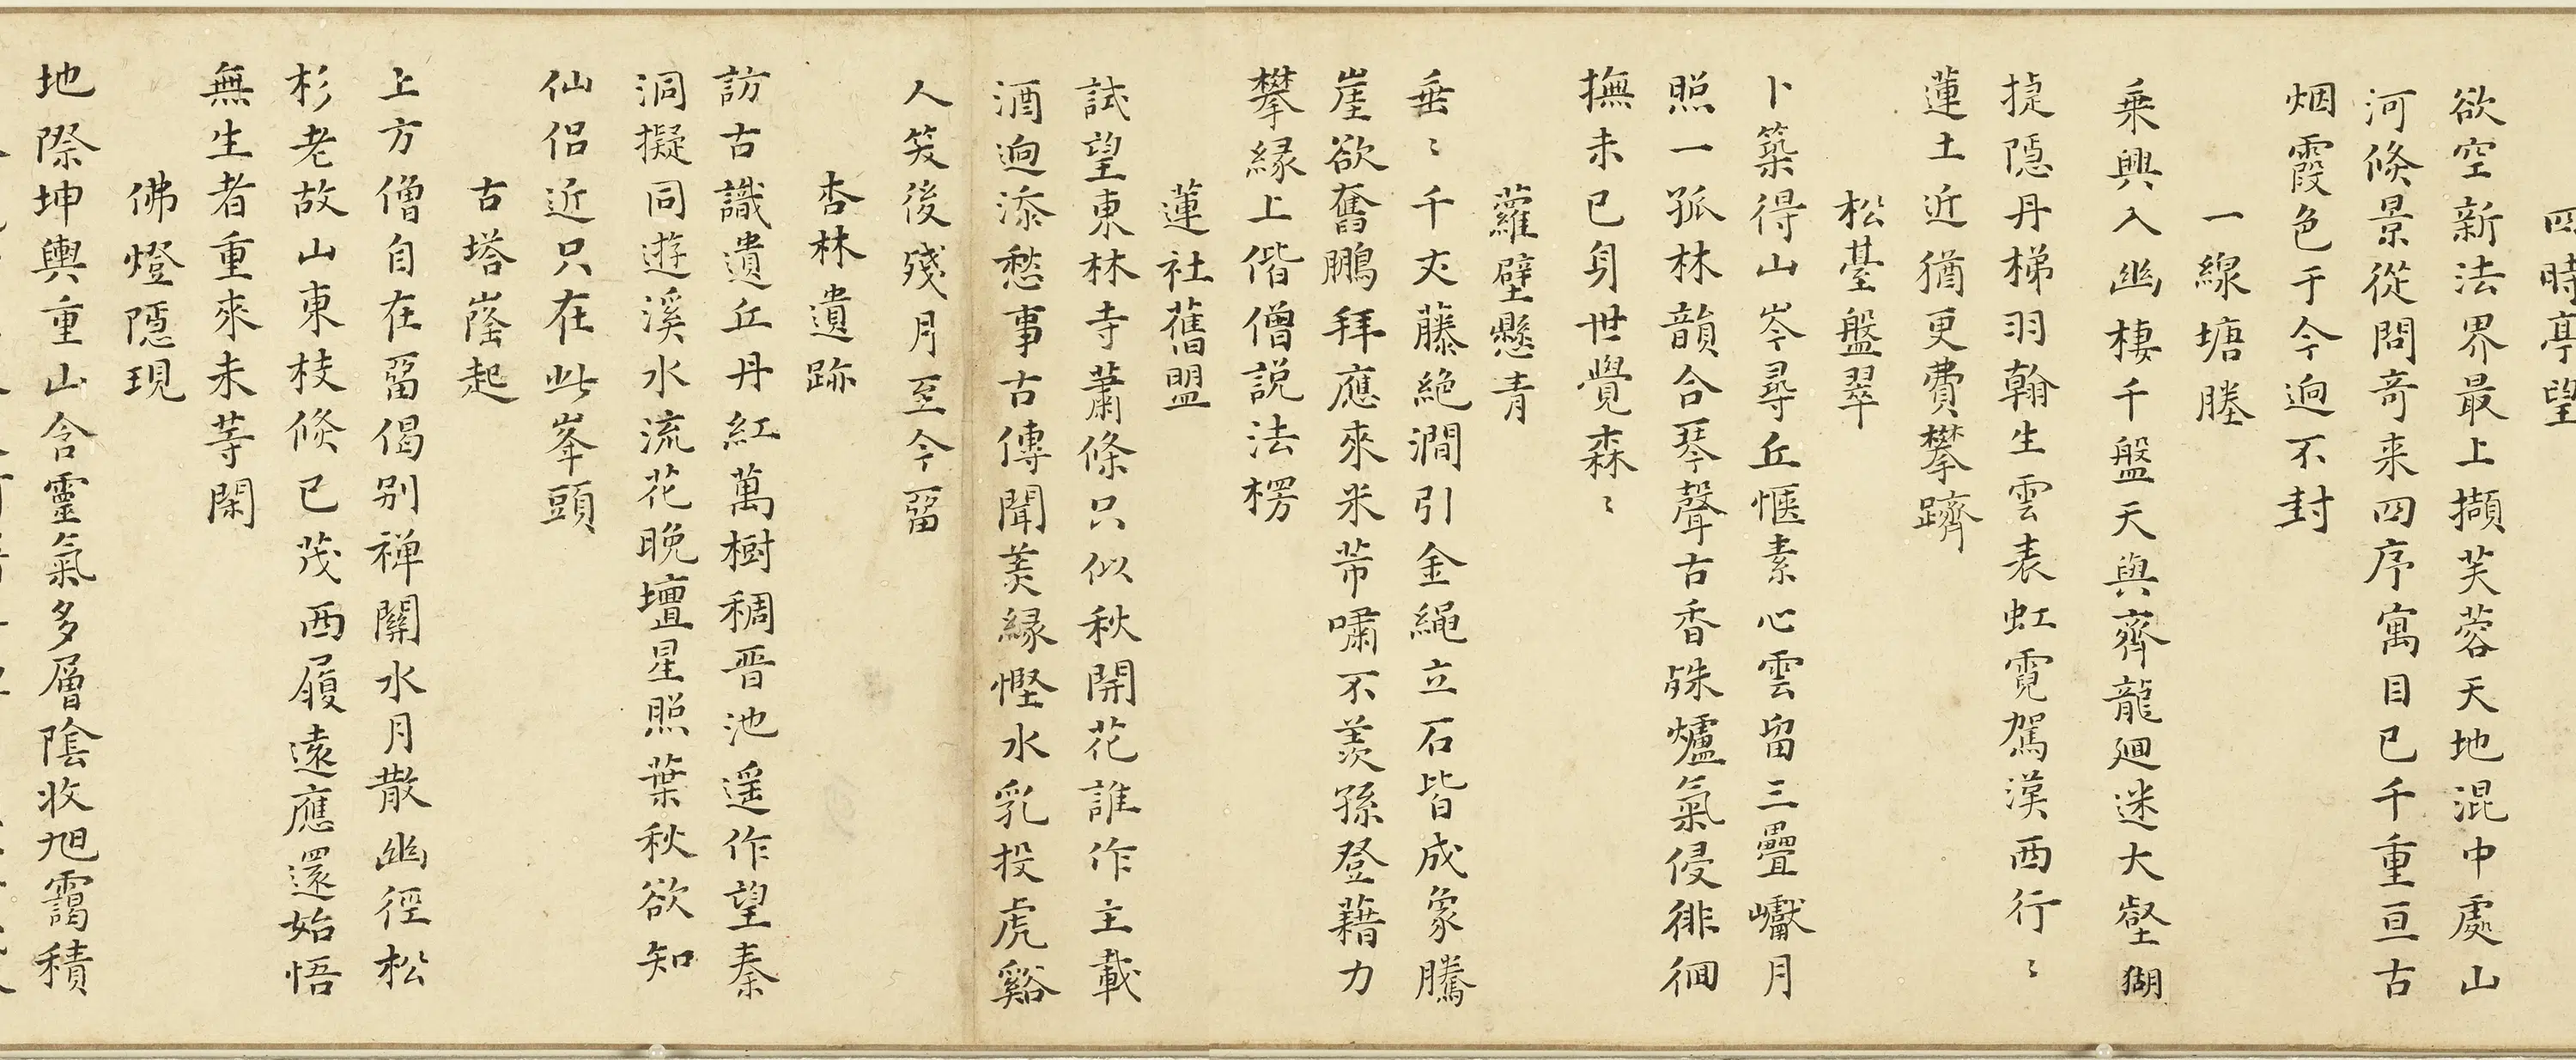 四時亭望
欲空新法界最上擷芙蓉天地混中處山
河倏景從問奇来四序寓目已千重亘古
烟霞色于今逈不封
一線塘塍
乘興入幽棲千盤天與齊龍廻迷大壑猢
㨗隱丹梯羽翰生雲表虹霓駕漢西行〻
蓮土近猶更費攀躋
松臺盤翠
卜築得山岑尋丘愜素心雲留三疊巘月
照一孤林韻合琴聲古香殊爐氣侵徘徊
撫未已身世覺森〻
蘿壁懸青
垂〻千丈藤絶澗引金繩立石皆成象騰
崖欲奮鵬拜應來米芾嘯不羨孫登藉力
攀緣上偕僧説法楞
蓮社舊盟
試望東林寺蕭條只似秋開花誰作主載
酒逈添愁事古傳聞羨緣慳水乳投虎谿
人笑後殘月至今畱
杏林遺跡
訪古識遺丘丹紅萬樹稠晋池遥作望秦
洞擬同遊溪水流花晚壇星照葉秋欲知
仙侣近只在此峯頭
古塔窿起
上方僧自在畱偈别禅關水月散幽徑松
杉老故山東枝倏已茂西履遠應還始悟
無生者重來未等閑
佛燈隱現
地際坤輿重山含靈氣多層陰收旭靄積